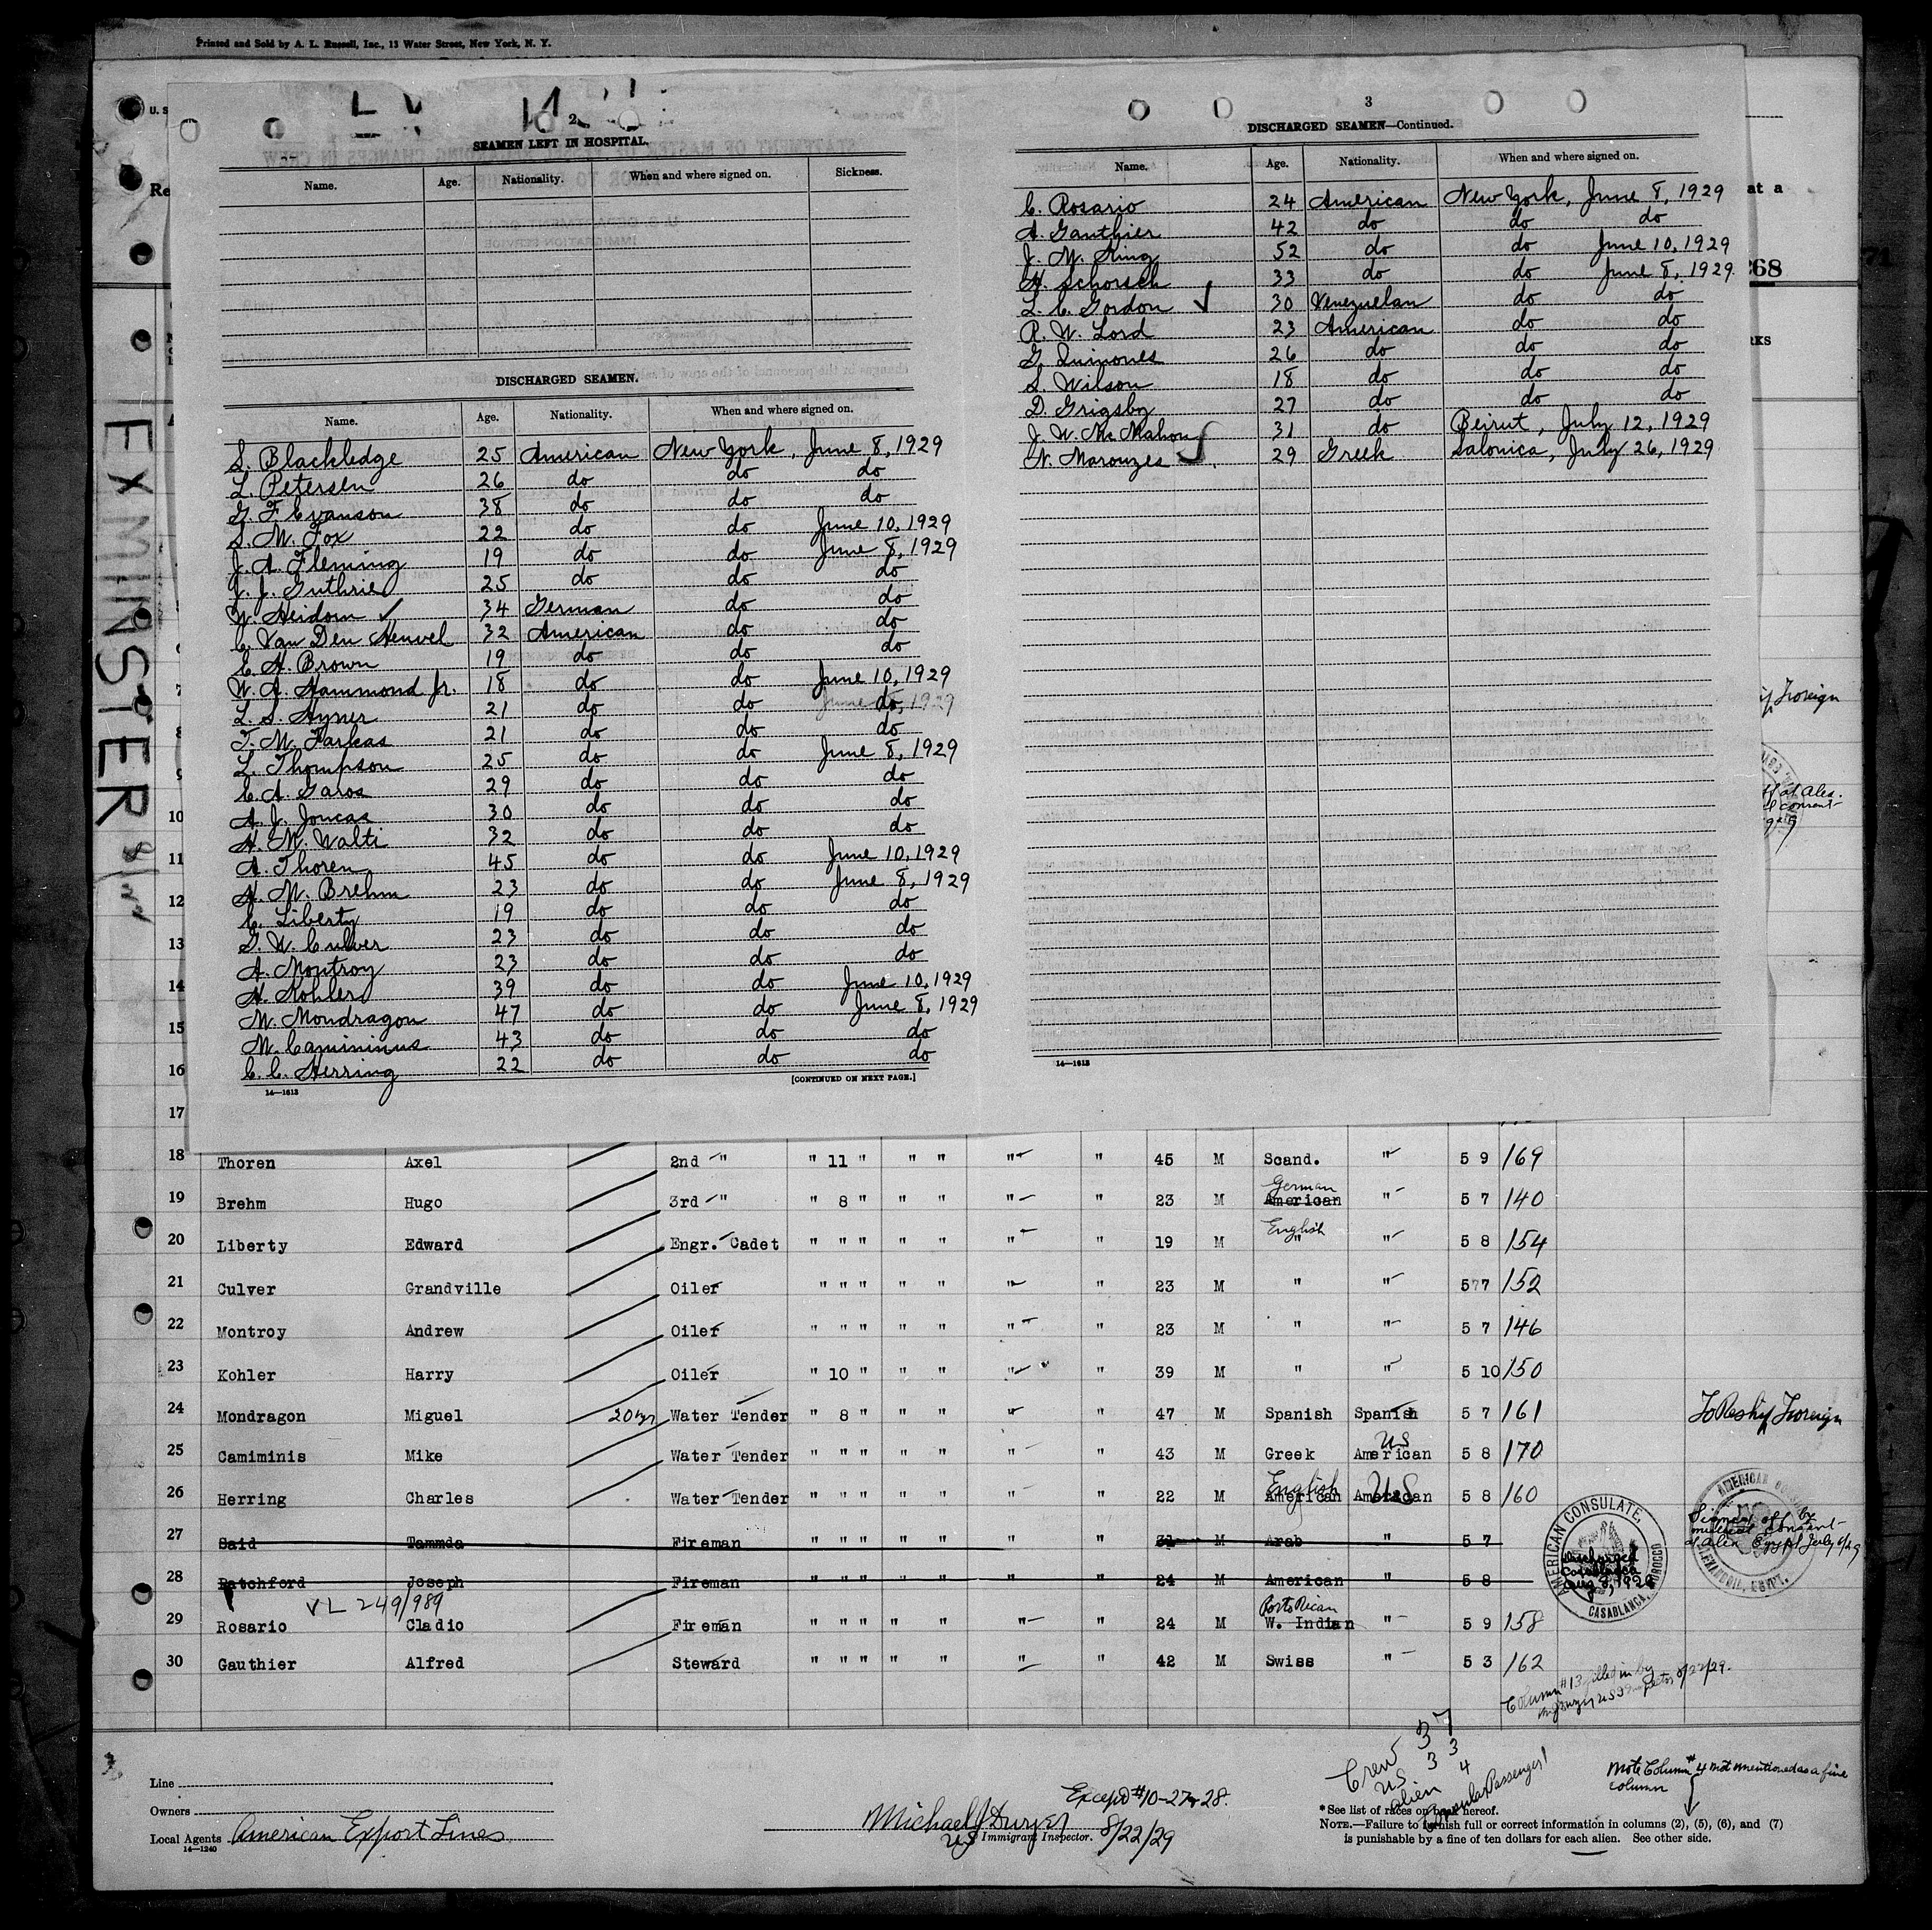 Printed and Sold by A. L. Russell, Inc., 13 Water Street, New York, N. Y.
U. S
Re
at a
268
71
RKS
EXMINSTER
2
SEAMEN LEFT IN HOSPITAL.
Name. Age. Nationality. When and where signed on. Sickness.
DISCHARGED SEAMEN.
Name. Age. Nationality. When and where signed on.
S. Blackledge 25 American New York, June 8, 1929
L. Petersen 26 do do do
G. F. Evanson 38 do do do
S. M. Fox 22 do do June 10, 1929
J. A. Fleming 19 do do June 8, 1929
J. J. Guthrie 25 do do do
W. Heidom ✓ 34 German do do
C. Van Den Heuvel 32 American do do
E. H. Brown 19 do do do
W. A. Hammond Jr. 18 do do June 10, 1929
L. S. Hyner 21 do do do
T. M. Farkas 21 do do do
L. Thompson 25 do do June 8, 1929
C. A. Garos 29 do do do
A. J. Joncas 30 do do do
H. M. Walti 32 do do do
A. Thoren 45 do do June 10, 1929
H. M. Brehm 23 do do June 8, 1929
E. Liberty 19 do do do
G. W. Culver 23 do do do
A. Montroy 23 do do do
H. Kohler 39 do do June 10, 1929
M. Mondragon 47 do do June 8, 1929
M. Camininus 43 do do do
C. C. Herring 22 do do do
14—1613 [CONTINUED ON NEXT PAGE.]
3
DISCHARGED SEAMEN—Continued.
Name. Age. Nationality. When and where signed on.
C. Rosario 24 American New York, June 8, 1929
A. Gauthier 42 do do do
J. M. King 52 do do June 10, 1929
H. Schorsch 33 do do June 8, 1929
L. C. Gordon ✓ 30 Venezuelan do do
R. W. Lord 23 American do do
G. Quinones 26 do do do
S. Wilson 18 do do do
D. Grigsby 27 do do do
J. W. McMahon 31 do Beirut, July 12, 1929
N. Marouzea ✓ 29 Greek Salonica, July 26, 1929
14—1613
10
11
12
13
14
15
16
17
18 Thoren Axel 2nd " " 11 " " " " " 45 M Scand. " 5 9 169
19 Brehm Hugo 3rd " " 8 " " " " " 23 M American German " 5 7 140
20 Liberty Edward Engr. Cadet " " " " " " " 19 M " English " 5 8 154
21 Culver Grandville Oiler " " " " " " " 23 M " " 5 7 152
22 Montroy Andrew Oiler " " " " " " " 23 M " " 5 7 146
23 Kohler Harry Oiler " 10 " " " " " 39 M " " 5 10 150
24 Mondragon Miguel 20 yr Water Tender " 8 " " " " " 47 M Spanish Spanish 5 7 161 To Reship Foreign
25 Camiminis Mike Water Tender " " " " " " " 43 M Greek American US 5 8 170
26 Herring Charles Water Tender " " " " " " " 22 M American English American US 5 8 160
27 Said Tammda Fireman 31 M Arab " 5 7
28 Batchford Joseph Fireman " " " " " " " 24 American " 5 8
VL 249/989
29 Rosario Cladio Fireman " " " " " " " 24 M W. Indian Porto Rican " 5 9 158
30 Gauthier Alfred Steward " " " " " " " 42 M Swiss " 5 3 162
AMERICAN CONSULATE, CASABLANCA, MOROCCO
Discharged
Casablanca
Aug 8, 1929
AMERICAN
ALEXANDRIA, EGYPT.
Signed off by
mutual consent
at Alex Egypt July 6/29
Column #13 filled in by
US Inspector 8/22/29.
Foreign
at Alex.
consent
Crew 37
US 33
alien 4
Consular Passenger 1
Note Column #4 not mentioned as a fine
column
Line
Owners
Local Agents American Export Lines
14—1240
Except #10-27-28.
Michael J Dwyer
US Immigrant Inspector. 8/22/29
*See list of races on back hereof.
NOTE.—Failure to furnish full or correct information in columns (2), (5), (6), and (7)
is punishable by a fine of ten dollars for each alien. See other side.